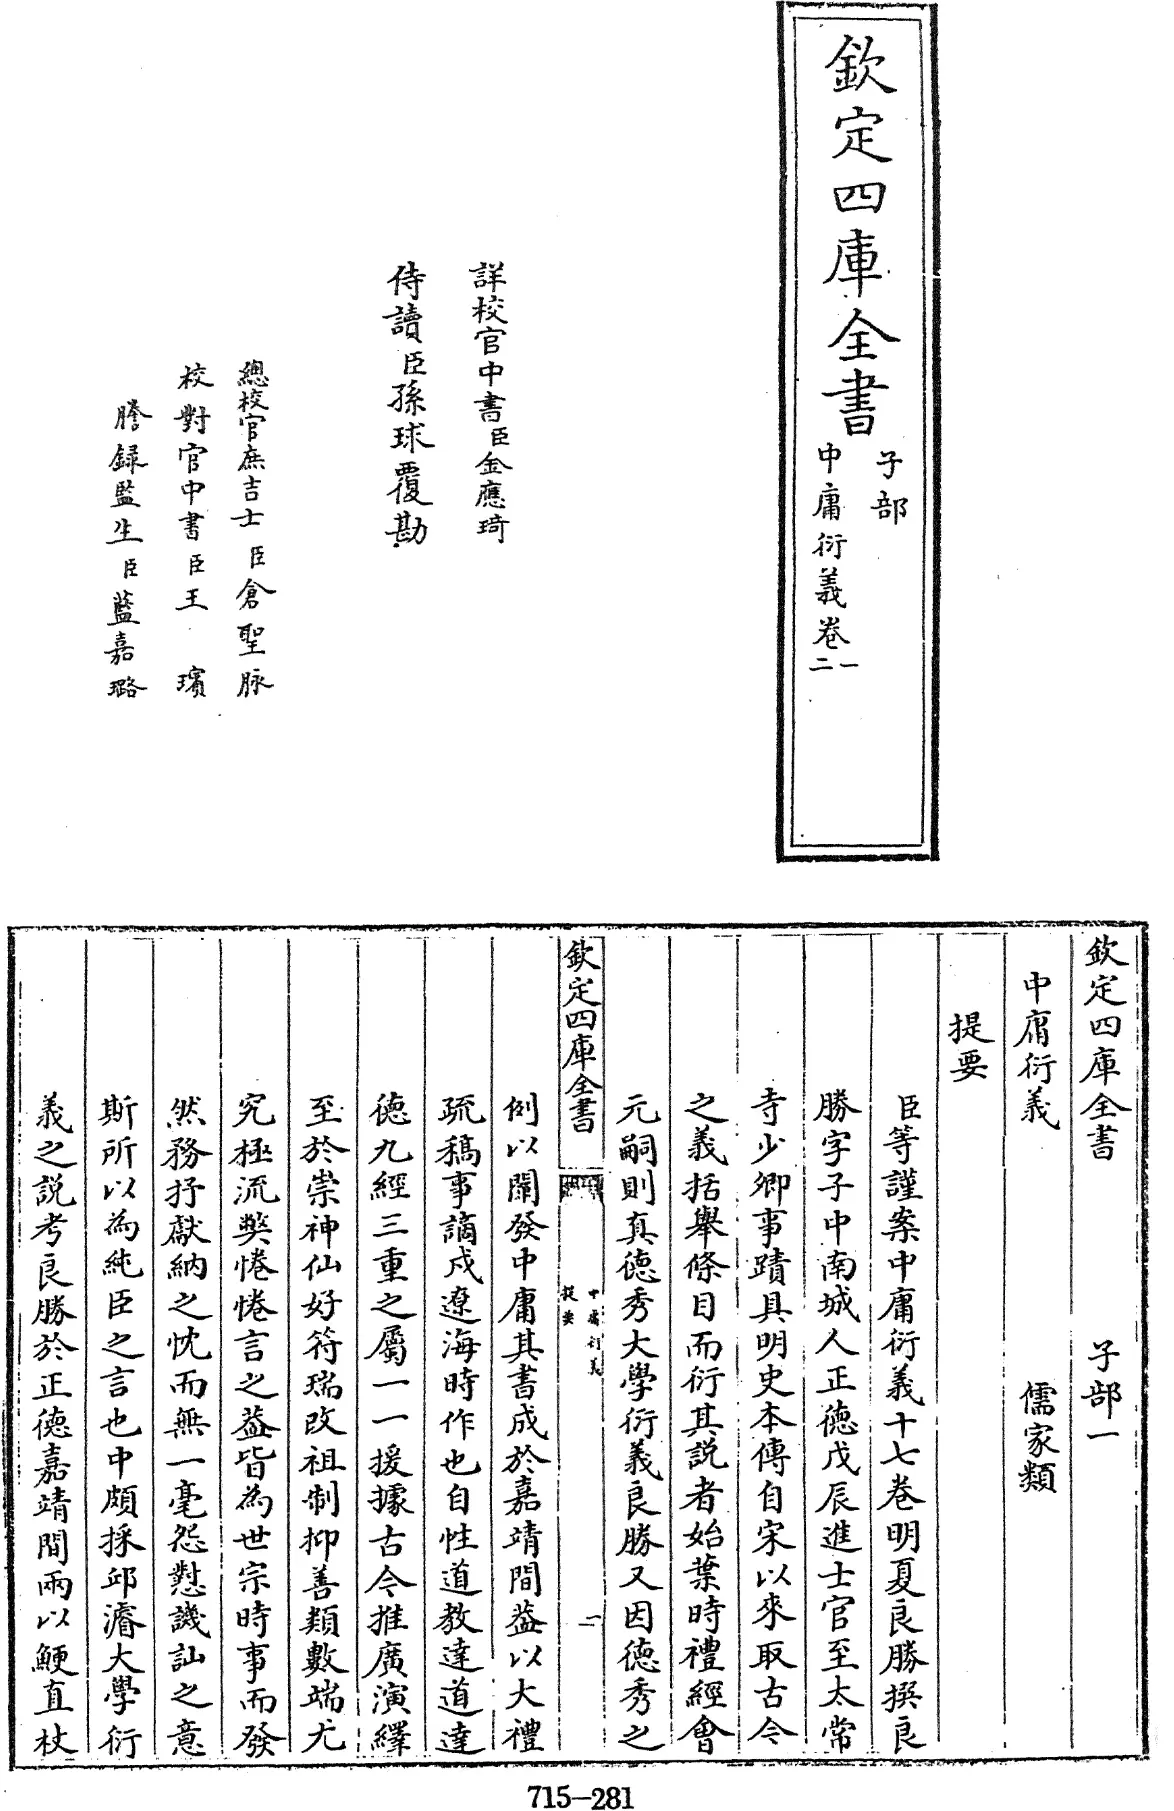 欽定四庫全書
子部
中庸衍義卷一
二
詳校官中書臣金應琦
侍讀臣孫球覆勘
總校官庶吉士臣倉聖脉
校對官中書臣王瑸
謄録監生臣藍嘉璐
欽定四庫全書 子部一
中庸衍義 儒家類
提要
臣等謹案中庸衍義十七卷明夏良勝撰良
勝字子中南城人正德戊辰進士官至太常
寺少卿事蹟具明史本傳自宋以來取古今
之義括舉條目而衍其説者始葉時禮經會
元嗣則真德秀大學衍義良勝又因德秀之
欽定四庫全書
中庸衍義
提要
一
例以闡發中庸其書成於嘉靖間葢以大禮
疏稿事謫戍遼海時作也自性道教達道達
德九經三重之屬一一援據古今推廣演繹
至於崇神仙好符瑞改祖制抑善類數端尤
究極流獘惓惓言之葢皆為世宗時事而發
然務抒獻納之忱而無一毫怨懟譏訕之意
斯所以為純臣之言也中頗採邱濬大學衍
義之説考良勝於正德嘉靖間兩以鯁直杖
715–281